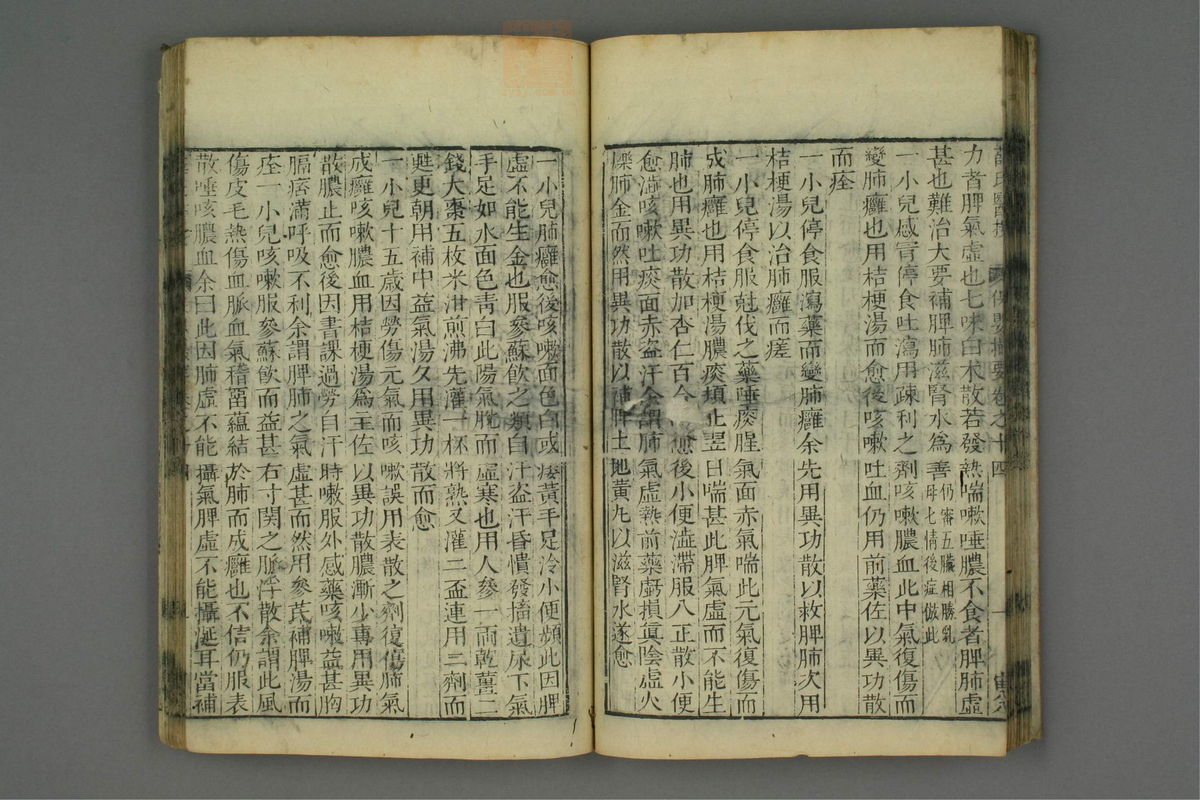 薛氏醫按 保嬰撮要卷之十四
力者脾氣虛也七味白朮散若發熱喘嗽唾膿不食者脾肺虛
甚也難治大要補脾肺滋腎水為善仍審五臟相勝乳母七情後症倣此
一小兒感冒停食吐瀉用疎利之劑咳嗽膿血此中氣復傷而
變肺癰也用桔梗湯而愈後咳嗽吐血仍用前藥佐以異功散
而痊
一小兒停食服瀉藥而變肺癰余先用異功散以救脾肺次用
桔梗湯以治肺癰而瘥
一小兒停食服尅伐之藥唾痰腥氣面赤氣喘此元氣復傷而
成肺癰也用桔梗湯膿痰頓止翌日喘甚此脾氣虛而不能生
肺也用異功散加杏仁百合 愈後小便澁滯服八正散小便
愈澁咳嗽吐痰面赤盜汗余謂肺氣虛熱前藥虧損眞陰虛火
爍肺金而然用異功散以補脾土地黃丸以滋腎水遂愈
一小兒肺癰愈後咳嗽面色白或痿黃手足冷小便頻此因脾
虛不能生金也服參蘇飲之類自汗盜汗昏憒發搐遺尿下氣
手足如氷面色青白此陽氣脫而虛寒也用人參一兩乾薑二
錢大棗五枚米泔煎沸先灌一杯將熟又灌二盃連用三劑而
甦更朝用補中益氣湯夕用異功散而愈
一小兒十五歲因勞傷元氣而咳嗽誤用表散之劑復傷肺氣
成癰咳嗽膿血用桔梗湯爲主佐以異功散膿漸少專用異功
散膿止而愈後因書課過勞自汗時嗽服外感藥咳嗽益甚胸
膈痞滿呼吸不利余謂脾肺之氣虛甚而然用參芪補脾湯而
痊一小兒咳嗽服參蘇飲而益甚右寸関之脈浮散余謂此風
傷皮毛熱傷血脈血氣稽畱蘊結於肺而成癰也不信仍服表
散唾咳膿血余曰此因肺虛不能攝氣脾虛不能攝涎耳當補